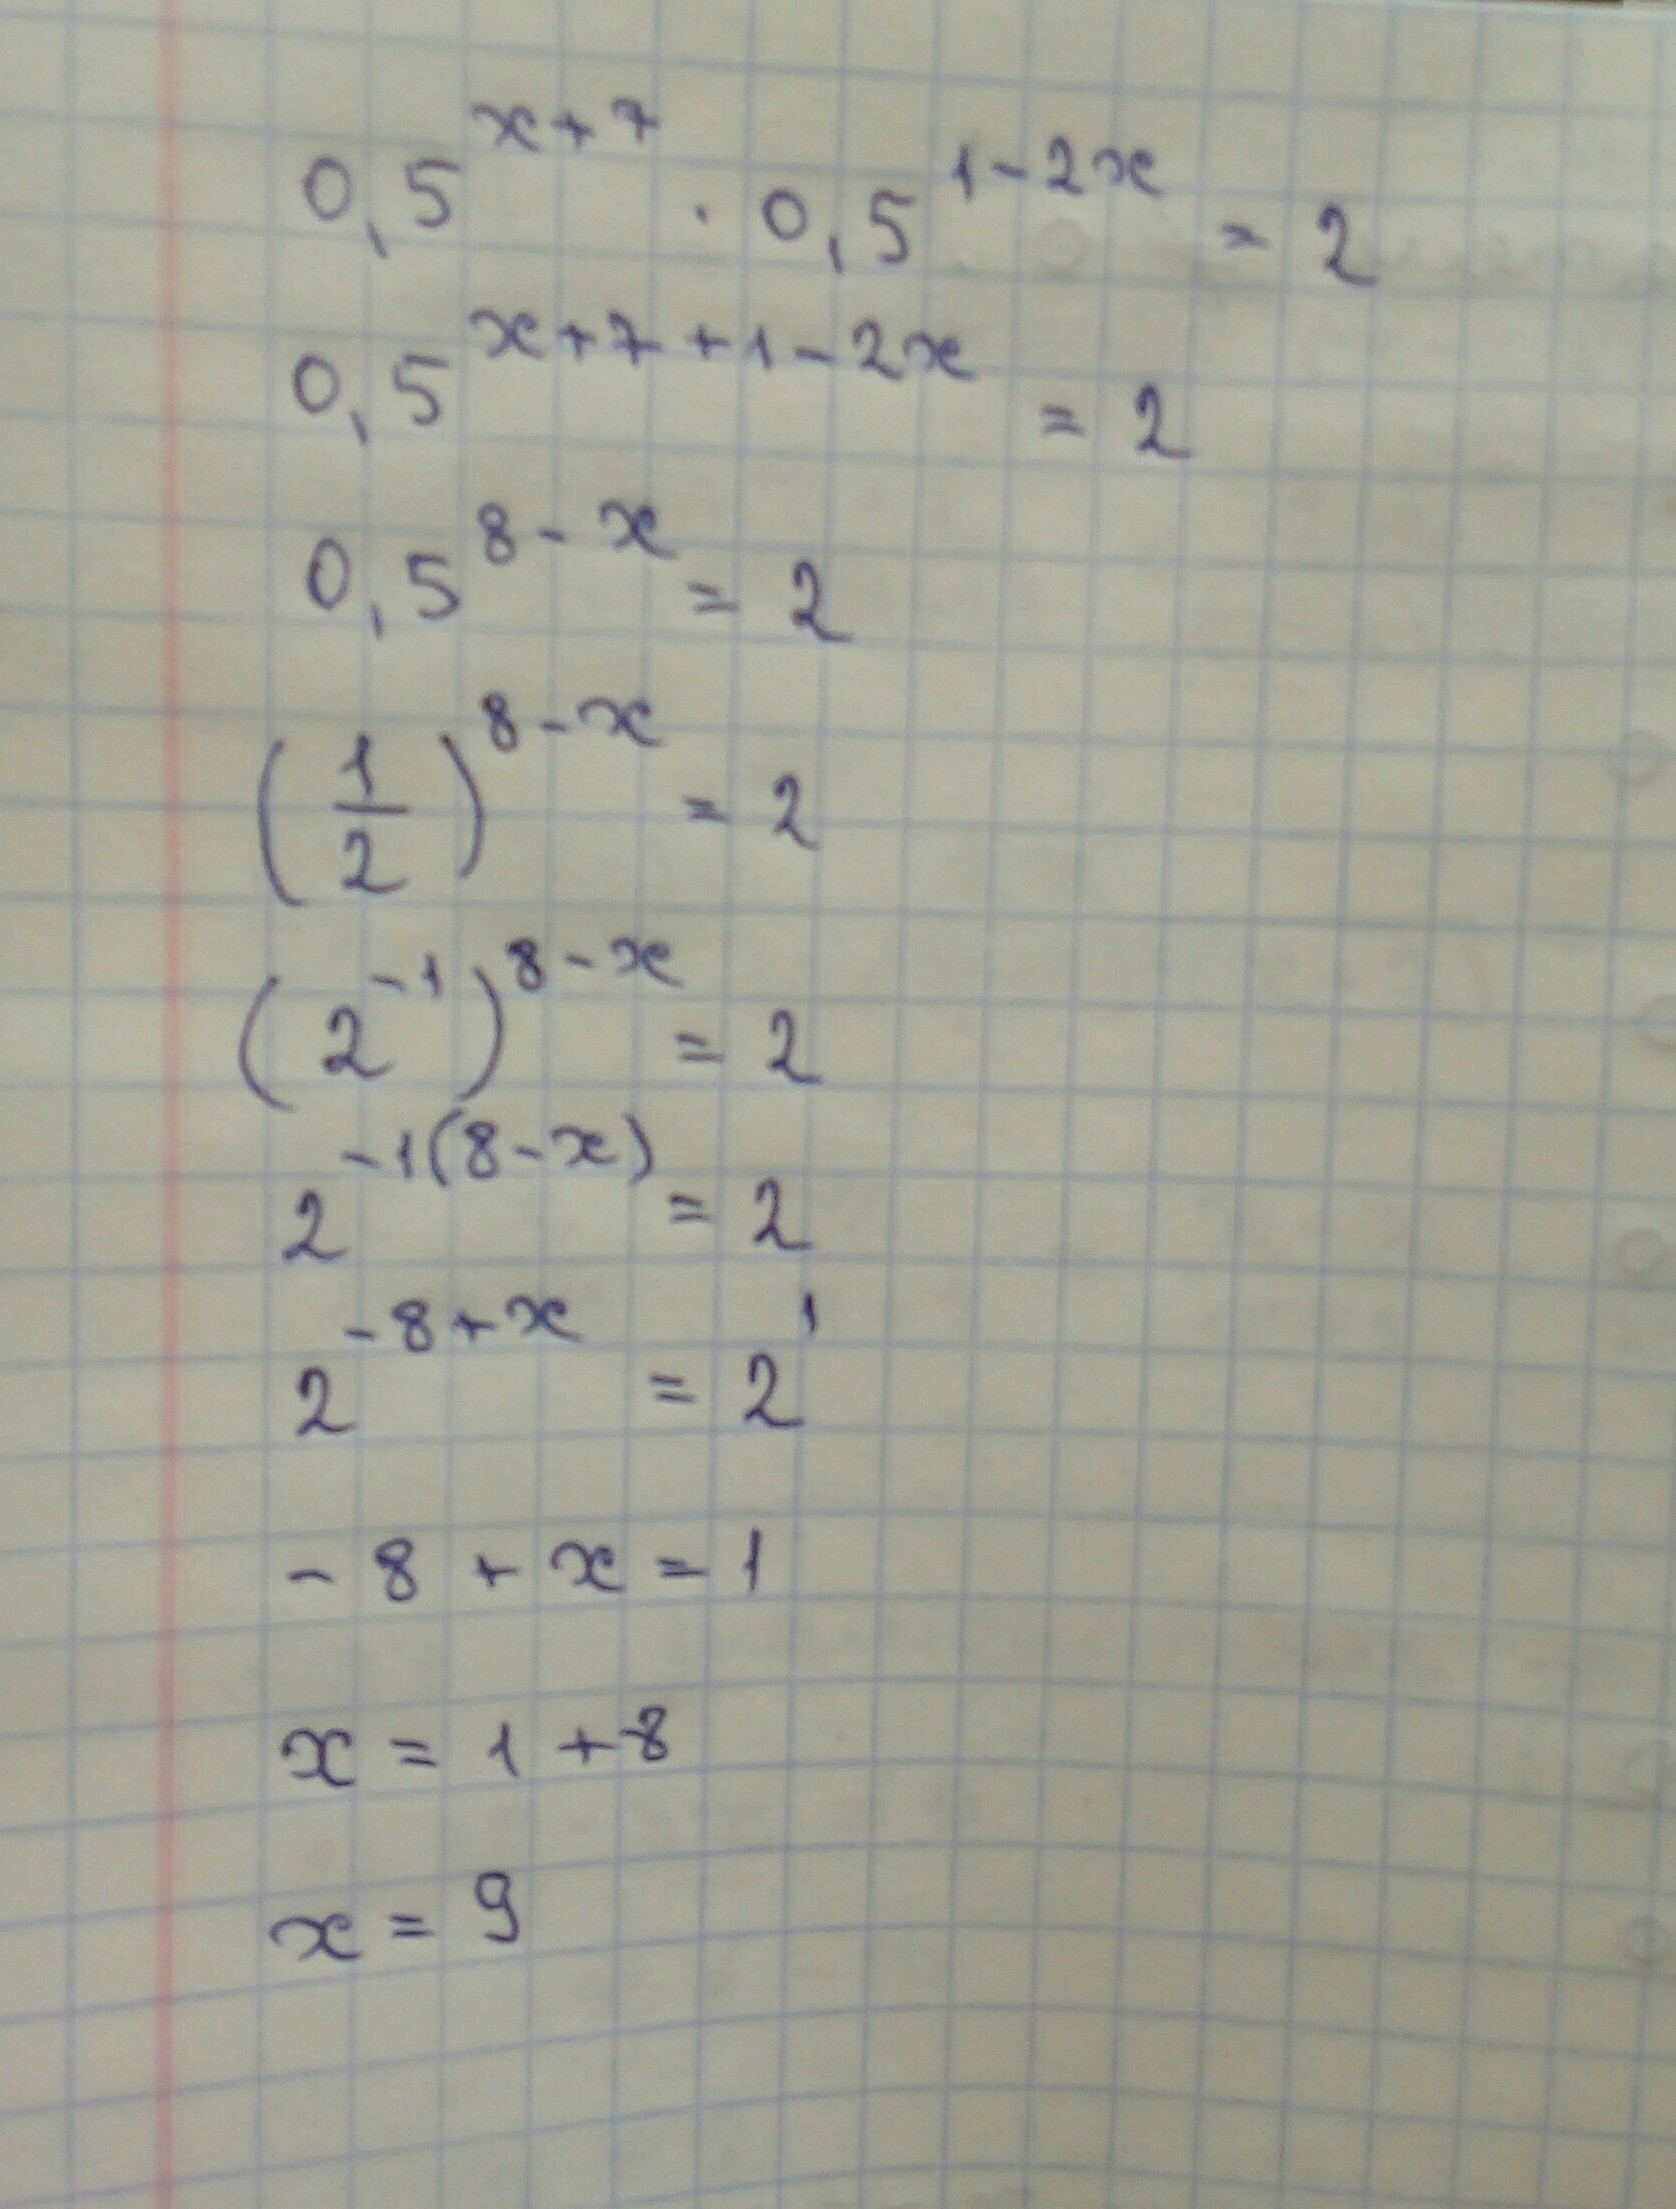 0,5^{x+7} · 0,5^{1-2x} = 2
0,5^{x+7+1-2x} = 2
0,5^{8-x} = 2
(1/2)^{8-x} = 2
(2^{-1})^{8-x} = 2
2^{-1(8-x)} = 2
2^{-8+x} = 2^1
-8 + x = 1
x = 1 + 8
x = 9